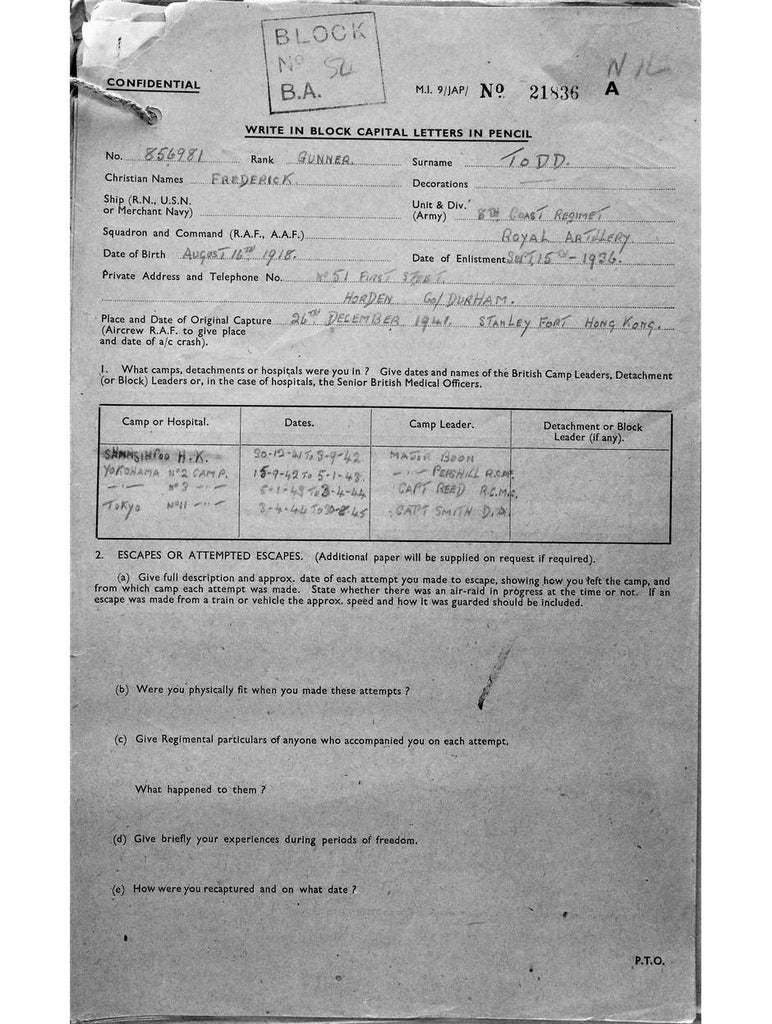 BLOCK
Nº 54
B.A.
CONFIDENTIAL
M.I. 9/JAP/ Nº 21836 A
WRITE IN BLOCK CAPITAL LETTERS IN PENCIL
No. 856981 Rank GUNNER. Surname TODD.
Christian Names FREDERICK. Decorations —
Ship (R.N., U.S.N.
or Merchant Navy)
Unit & Div.
(Army) 8TH COAST REGIMET
Squadron and Command (R.A.F., A.A.F.) ROYAL ARTILLERY.
Date of Birth AUGUST 16TH 1918. Date of Enlistment SEPT. 15TH - 1936.
Private Address and Telephone No. Nº 51 FIRST STEET.
HORDEN CO/ DURHAM.
Place and Date of Original Capture 26TH DECEMBER 1941. STANLEY FORT HONG KONG.
(Aircrew R.A.F. to give place
and date of a/c crash).
1. What camps, detachments or hospitals were you in ? Give dates and names of the British Camp Leaders, Detachment
(or Block) Leaders or, in the case of hospitals, the Senior British Medical Officers.
Camp or Hospital. Dates. Camp Leader. Detachment or Block
Leader (if any).
SHAMSHIPOO H.K. 30-12-41 TO 3-9-42 MAJOR BOON
YOKOHAMA Nº2 CAMP. 15-9-42 TO 5-1-43. -"-
-"- Nº3 -"- 5-1-43 TO 3-4-44 CAPT REED R.C.M.C.
TOKYO Nº11 -"- 3-4-44 TO 30-8-45 CAPT SMITH
2. ESCAPES OR ATTEMPTED ESCAPES. (Additional paper will be supplied on request if required).
(a) Give full description and approx. date of each attempt you made to escape, showing how you left the camp, and
from which camp each attempt was made. State whether there was an air-raid in progress at the time or not. If an
escape was made from a train or vehicle the approx. speed and how it was guarded should be included.
(b) Were you physically fit when you made these attempts ?
(c) Give Regimental particulars of anyone who accompanied you on each attempt.
What happened to them ?
(d) Give briefly your experiences during periods of freedom.
(e) How were you recaptured and on what date ?
P.T.O.